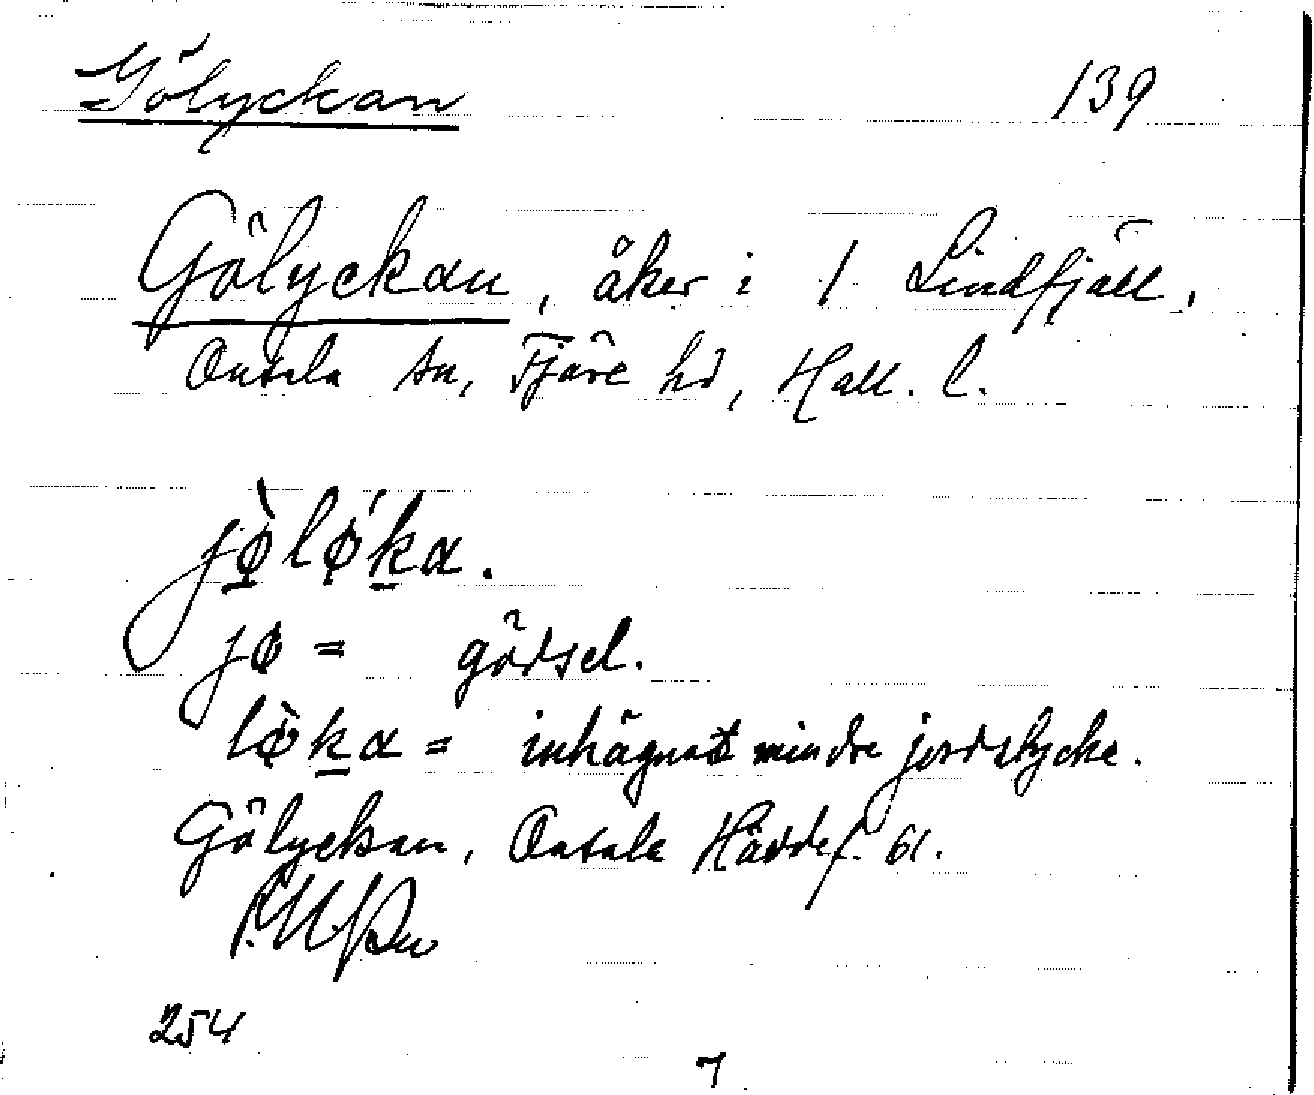 Gölyckan 139
Gölyckan, åker i 1 Lindfjäll,
Onsala sn, Fjäre hd, Hall. l.
jø̀lǿka.
jø = gödsel.
lø̀ka = inhägnat mindre jordstycke.
Gölyckan, Onsala Häddef. 61.
254
7